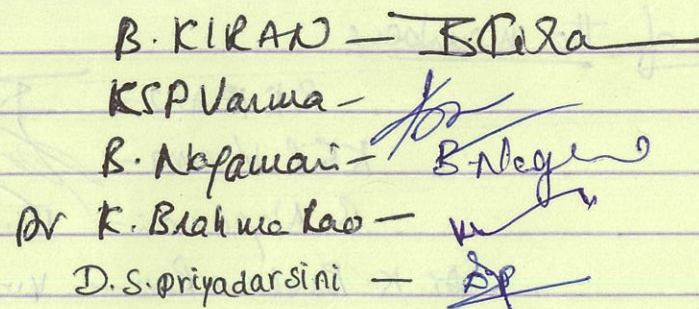 B. KIRAN — B.Kira
KSP Varma –
B. Nagamani – B.Nag
Dr K. Brahma Rao –
D.S. priyadarsini —